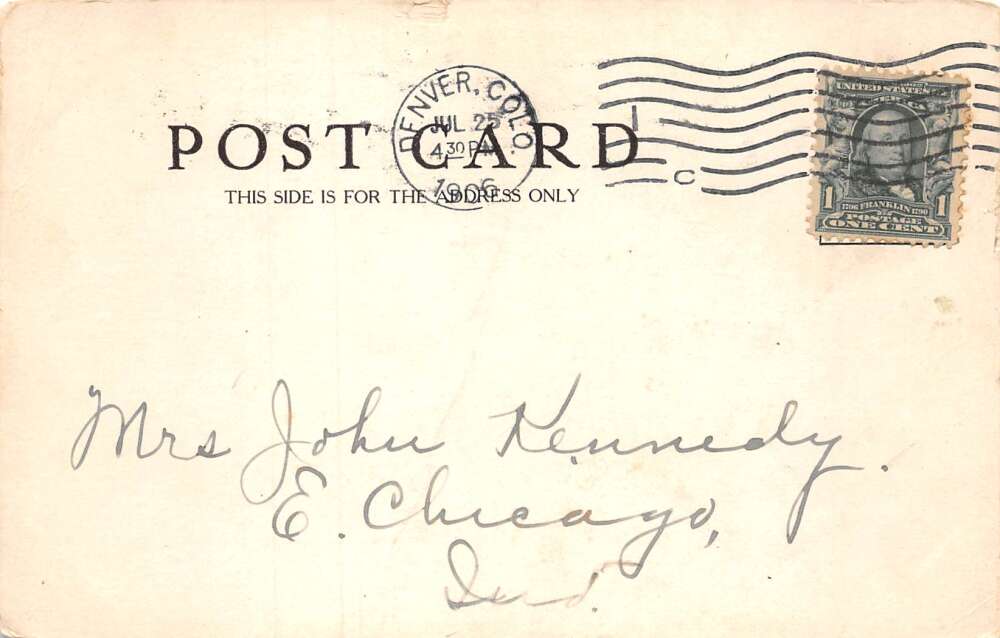 DENVER, COLO.
JUL 25
4 30 PM
1906
POST CARD
THIS SIDE IS FOR THE ADDRESS ONLY
C
UNITED STATES
1 1706 FRANKLIN 1790 1
POSTAGE
ONE CENT
Mrs John Kennedy.
E. Chicago,
Ind.